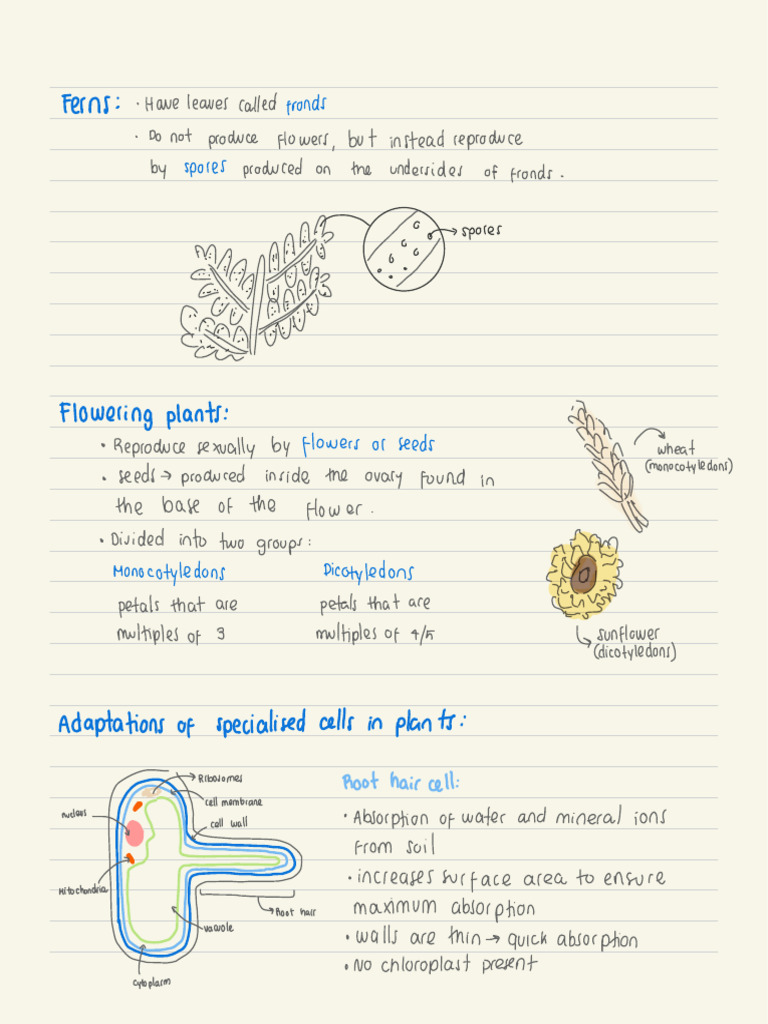 Ferns: · Have leaves called fronds
· Do not produce flowers, but instead reproduce
by spores produced on the undersides of fronds.
spores
Flowering plants:
· Reproduce sexually by flowers or seeds
· seeds → produced inside the ovary found in
the base of the flower.
· Divided into two groups:
Monocotyledons Dicotyledons
petals that are petals that are
multiples of 3 multiples of 4/5
wheat
(monocotyledons)
sunflower
(dicotyledons)
Adaptations of specialised cells in plants:
Ribosomes
cell membrane
cell wall
nucleus
Mitochondria
Root hair
vacuole
cytoplasm
Root hair cell:
· Absorption of water and mineral ions
from soil
· increases surface area to ensure
maximum absorption
· walls are thin → quick absorption
· No chloroplast present